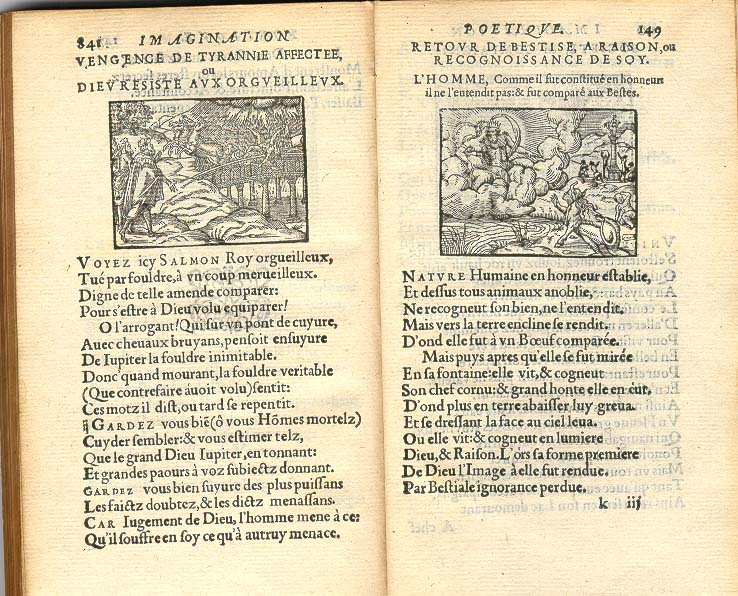 841 IMAGINATION
VENGENCE DE TYRANNIE AFFECTEE,
ou
DIEV RESISTE AVX ORGVEILLEVX.
VOYEZ icy SALMON Roy orgueilleux,
Tué par fouldre, à vn coup merueilleux.
Digne de telle amende comparer:
Pour s'estre à Dieu volu equiparer!
O l'arrogant! Qui sur vn pont de cuyure,
Auec cheuaux bruyans, pensoit ensuyure
De Iupiter la fouldre inimitable.
Donc quand mourant, la fouldre veritable
(Que contrefaire auoit volu) sentit:
Ces motz il dist, ou tard se repentit.
GARDEZ vous biẽ (ô vous Hõmes mortelz)
Cuyder sembler: & vous estimer telz,
Que le grand Dieu Iupiter, en tonnant:
Et grandes paours à voz subiectz donnant.
GARDEZ vous bien suyure des plus puissans
Les faictz doubtez, & les dictz menassans.
CAR Iugement de Dieu, l'homme mene à ce:
Qu'il souffre en soy ce qu'à autruy menace.
POETIQVE. 149
RETOVR DE BESTISE, A RAISON, ou
RECOGNOISSANCE DE SOY.
L'HOMME, Comme il fut constitué en honneur
il ne l'entendit pas: & fut comparé aux Bestes.
NATVRE Humaine en honneur establie,
Et dessus tous animaux anoblie,
Ne recogneut son bien, ne l'entendit.
Mais vers la terre encline se rendit.
D'ond elle fut à vn Bœuf comparée.
Mais puys apres qu'elle se fut mirée
En sa fontaine: elle vit, & cogneut
Son chef cornu: & grand honte elle en eut,
D'ond plus en terre abaisser luy greua.
Et se dressant la face au ciel leua.
Ou elle vit: & cogneut en lumiere
Dieu, & Raison. L'ors sa forme premiere
De Dieu l'Image à elle fut rendue.
Par Bestiale ignorance perdue.
k iij